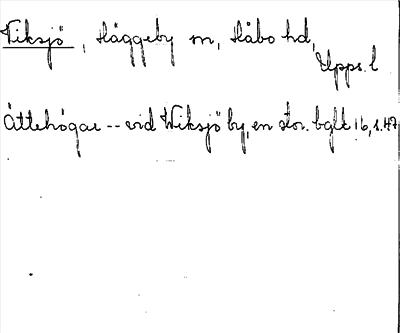 Viksjö, Häggeby sn, Håbo hd,
Upps. l
Ättehögar -- vid Wiksjö by, en stor. bglt 16, s. 47